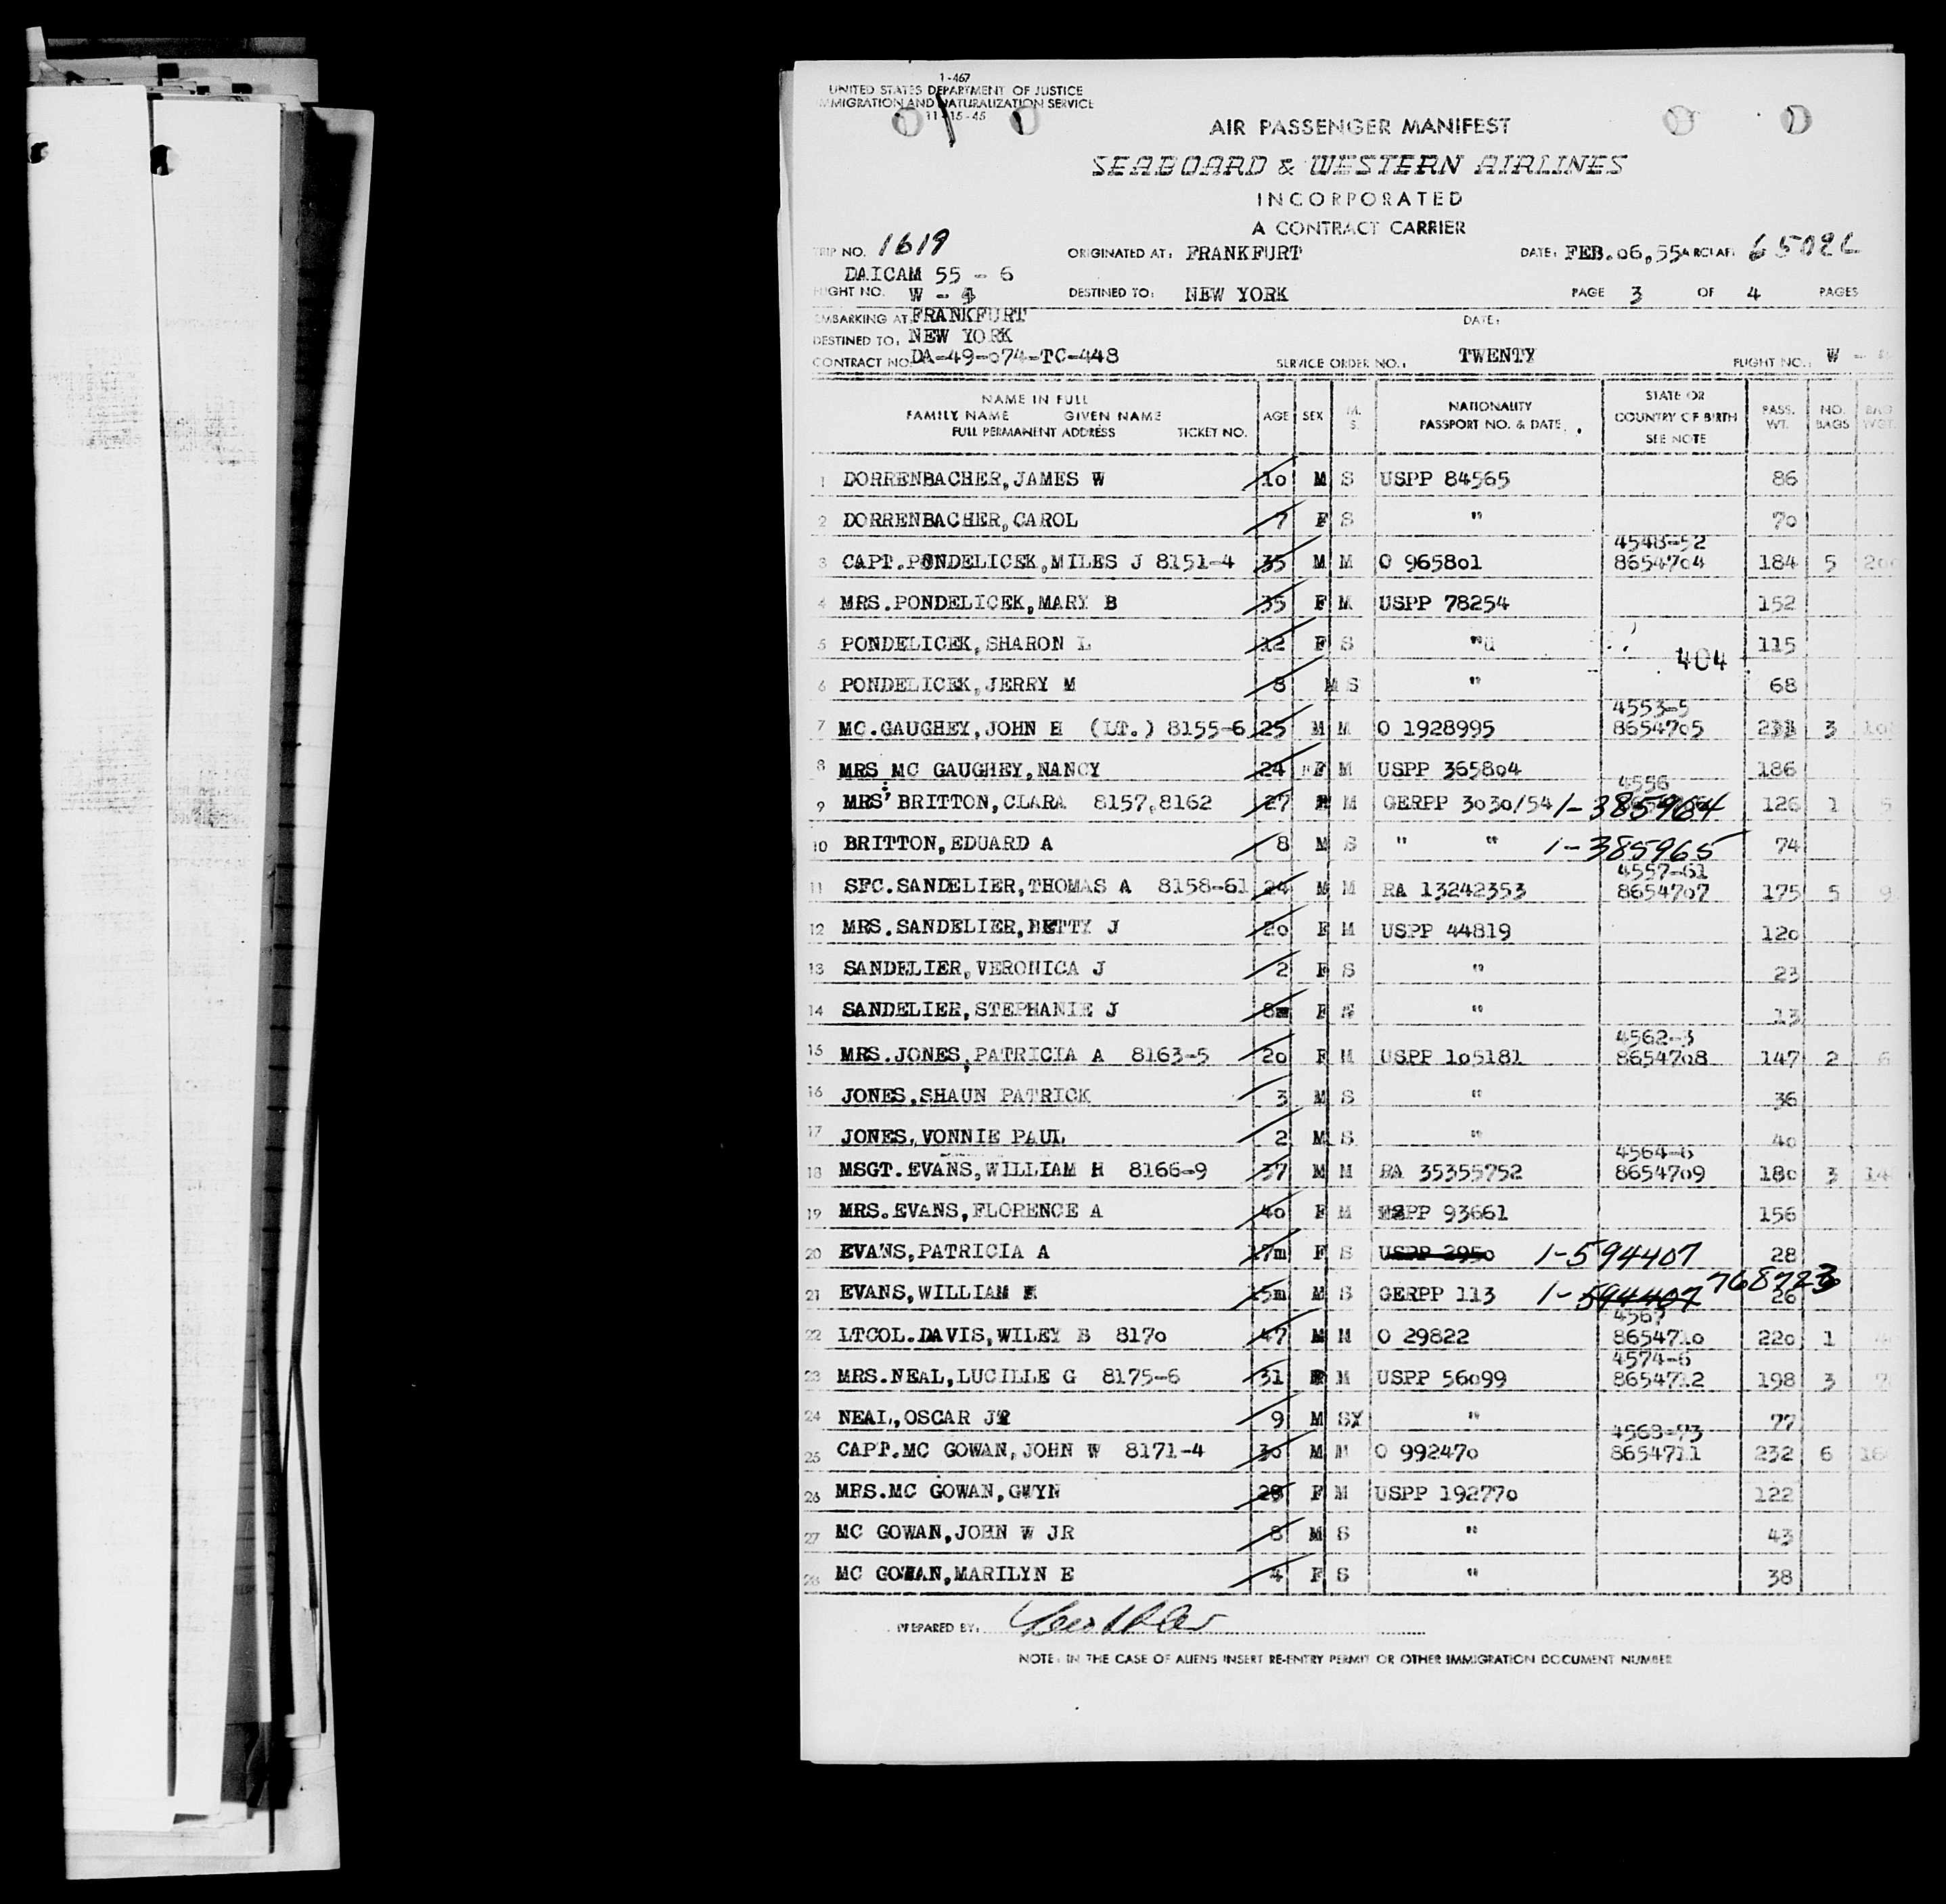 1-467
UNITED STATES DEPARTMENT OF JUSTICE
IMMIGRATION AND NATURALIZATION SERVICE
11-15-45
AIR PASSENGER MANIFEST
SEABOARD & WESTERN AIRLINES
INCORPORATED
A CONTRACT CARRIER
TRIP NO. 1619 ORIGINATED AT: FRANKFURT DATE: FEB.06,55 AIRCRAFT
DAICAM 55 - 6
FLIGHT NO. W - 4 DESTINED TO: NEW YORK PAGE 3 OF 4 PAGES
EMBARKING AT FRANKFURT DATE:
DESTINED TO: NEW YORK
CONTRACT NO. DA-49-074-TC-448 SERVICE ORDER NO.: TWENTY FLIGHT NO.: W -
NAME IN FULL
FAMILY NAME GIVEN NAME
FULL PERMANENT ADDRESS TICKET NO.
AGE SEX M. S. NATIONALITY PASSPORT NO. & DATE STATE OR COUNTRY OF BIRTH SEE NOTE PASS. WT. NO. BAGS BAG WGT.
1 DORRENBACHER,JAMES W 10 M S USPP 84565 86
2 DORRENBACHER,CAROL 7 F S " 70
4548-52
3 CAPT.PONDELICEK,MILES J 8151-4 35 M M O 965801 8654704 184 5
4 MRS.PONDELICEK,MARY B 35 F M USPP 78254 152
5 PONDELICEK,SHARON L 12 F S " 115
404
6 PONDELICEK,JERRY M 8 M S " 68
4553-5
7 MC.GAUGHEY,JOHN H (LT.) 8155-6 25 M M O 1928995 8654705 3
8 MRS MC GAUGHEY,NANCY 24 F M USPP 365804 186
4556
9 MRS BRITTON,CLARA 8157,8162 27 F M GERPP 3030/54 1-385964 126 1 5
10 BRITTON,EDUARD A 8 M S " " 1-385965 74
4557-61
11 SFC.SANDELIER,THOMAS A 8158-61 24 M M RA 13242353 8654707 175 5 9
12 MRS.SANDELIER,BETTY J 20 F M USPP 44819 120
13 SANDELIER,VERONICA J 2 F S " 23
14 SANDELIER,STEPHANIE J 8m F S " 13
4562-3
15 MRS.JONES,PATRICIA A 8163-5 20 F M USPP 105181 8654708 147 2 6
16 JONES,SHAUN PATRICK 3 M S " 36
17 JONES,VONNIE PAUL 2 M S " 40
4564-6
18 MSGT.EVANS,WILLIAM H 8166-9 37 M M RA 35355752 8654709 180 3 14
19 MRS.EVANS,FLORENCE A 40 F M USPP 93661 156
20 EVANS,PATRICIA A 17m F S USPP 2950 1-594407 28
21 EVANS,WILLIAM 15m M S GERPP 113 1-594407 768723 26
4567
22 LTCOL.DAVIS,WILEY B 8170 47 M M O 29822 8654710 220 1
4574-6
23 MRS.NEAL,LUCILLE G 8175-6 31 F M USPP 56099 8654712 198 3
24 NEAL,OSCAR JR 9 M S " 77
4568-73
25 CAPT.MC GOWAN,JOHN W 8171-4 30 M M O 992470 8654711 232 6 16
26 MRS.MC GOWAN,GWYN 28 F M USPP 192770 122
27 MC GOWAN,JOHN W JR 8 M S " 43
28 MC GOWAN,MARILYN E 4 F S " 38
PREPARED BY:
NOTE: IN THE CASE OF ALIENS INSERT RE-ENTRY PERMIT OR OTHER IMMIGRATION DOCUMENT NUMBER